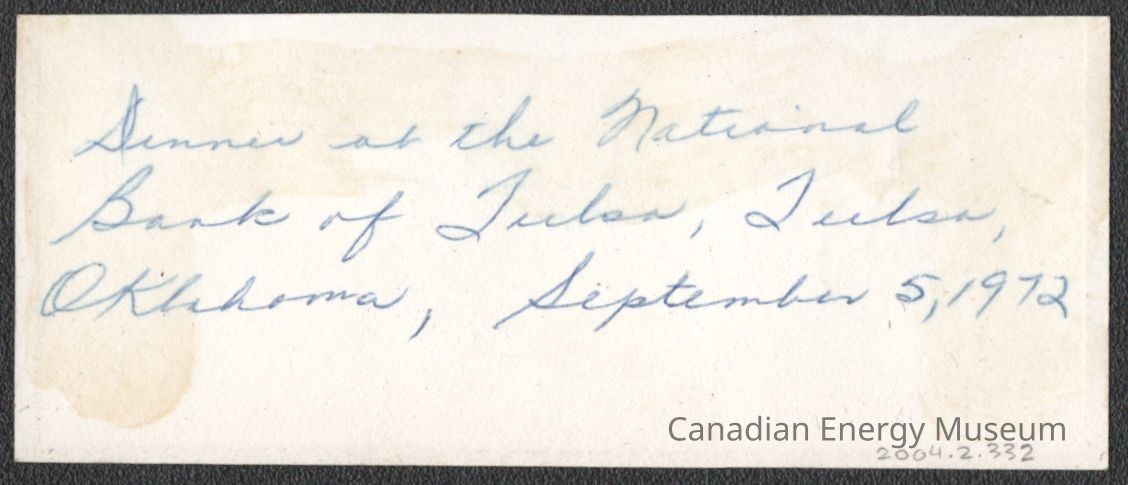 Dinner at the National
Bank of Tulsa, Tulsa,
Oklahoma, September 5, 1972
Canadian Energy Museum
2004.2.332